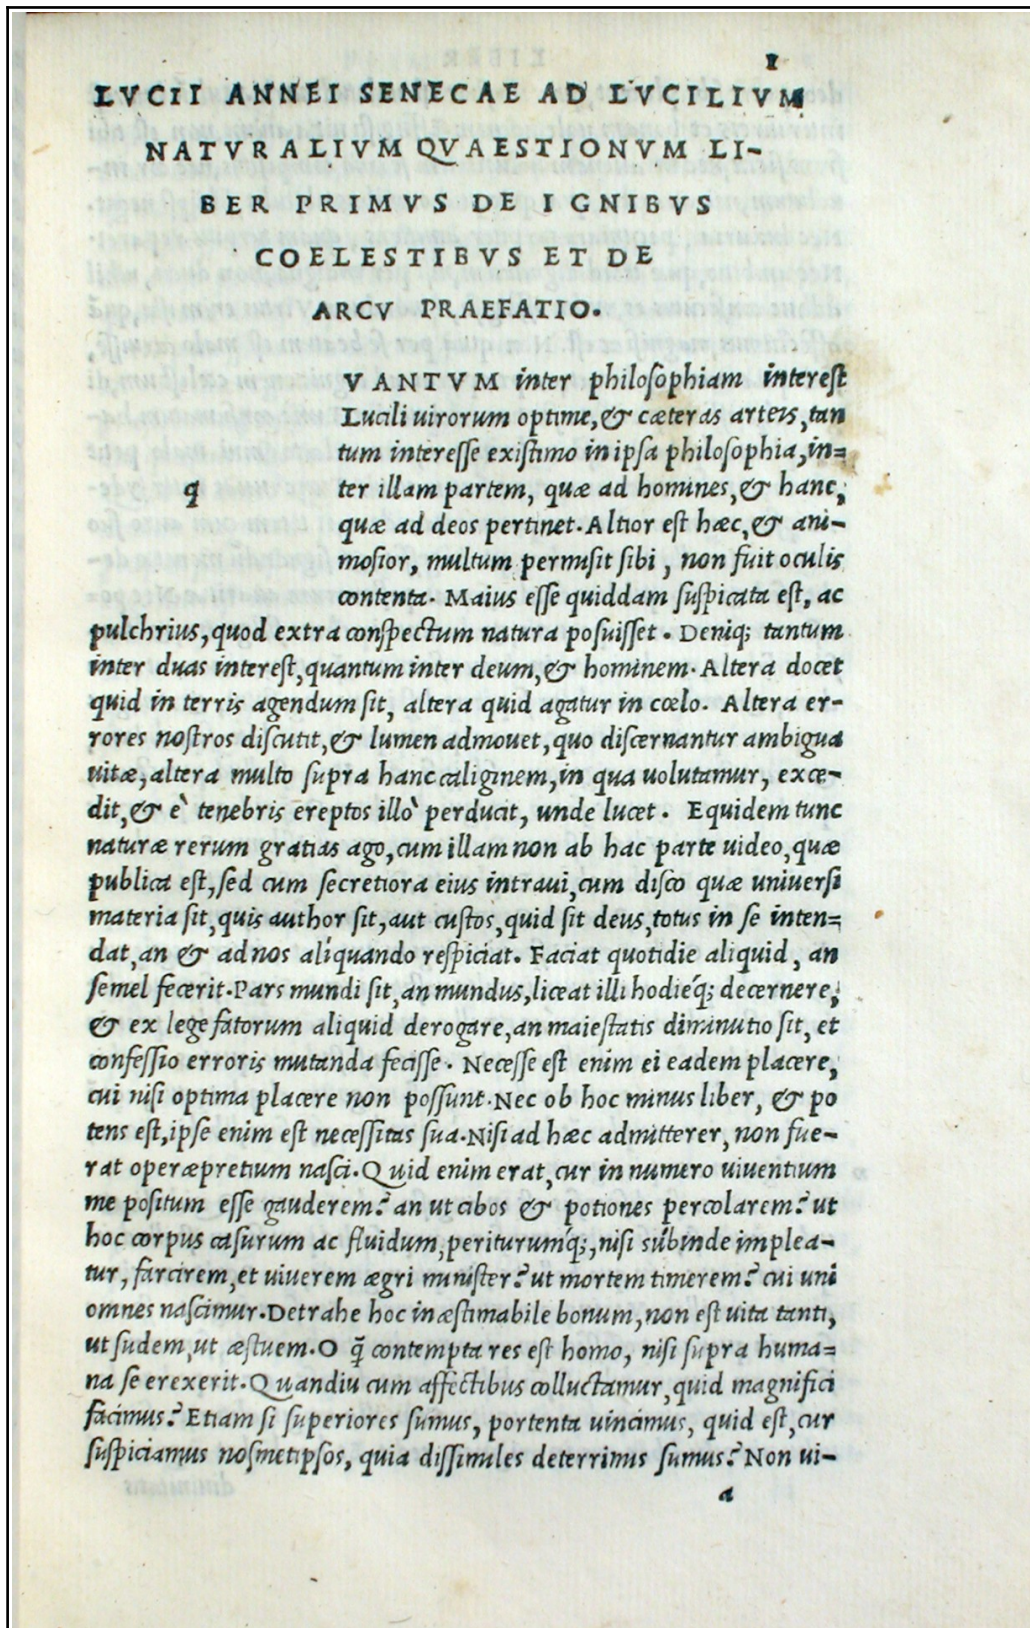 1
LVCII ANNEI SENECAE AD LVCILIVM
NATVRALIVM QVAESTIONVM LI-
BER PRIMVS DE IGNIBVS
COELESTIBVS ET DE
ARCV PRAEFATIO.
VANTVM inter philosophiam interest
Lucili uirorum optime, & cæteras arteis, tan
tum interesse existimo in ipsa philosophia, in=
q ter illam partem, quæ ad homines, & hanc,
quæ ad deos pertinet. Altior est hæc, & ani-
mosior, multum permisit sibi, non fuit oculis
contenta. Maius esse quiddam suspicata est, ac
pulchrius, quod extra conspectum natura posuisset. Deniq; tantum
inter duas interest, quantum inter deum, & hominem. Altera docet
quid in terris agendum sit, altera quid agatur in cœlo. Altera er-
rores nostros discutit, & lumen admouet, quo discernantur ambigua
uitæ, altera multo supra hanc caliginem, in qua uolutamur, exce-
dit, & è tenebris ereptos illò perducit, unde lucet. Equidem tunc
naturæ rerum gratias ago, cum illam non ab hac parte uideo, quæ
publica est, sed cum secretiora eius intraui, cum disco quæ uniuersi
materia sit, quis author sit, aut custos, quid sit deus, totus in se inten=
dat, an & ad nos aliquando respiciat. Faciat quotidie aliquid, an
semel fecerit. Pars mundi sit, an mundus, liceat illi hodiéq; decernere,
& ex lege fatorum aliquid derogare, an maiestatis diminutio sit, et
confessio erroris mutanda fecisse. Necesse est enim ei eadem placere,
cui nisi optima placere non possunt. Nec ob hoc minus liber, & po
tens est, ipse enim est necessitas sua. Nisi ad hæc admitterer, non fue-
rat operæpretium nasci. Quid enim erat, cur in numero uiuentium
me positum esse gauderem? an ut cibos & potiones percolarem? ut
hoc corpus casurum ac fluidum, periturumq́;, nisi subinde implea-
tur, farcirem, et uiuerem ægri minister? ut mortem timerem? cui uni
omnes nascimur. Detrahe hoc inæstimabile bonum, non est uita tanti,
ut sudem, ut æstuem. O q̃ contempta res est homo, nisi supra huma=
na se erexerit. Quandiu cum affectibus colluctamur, quid magnifici
facimus? Etiam si superiores sumus, portenta uincimus, quid est, cur
suspiciamus nosmetipsos, quia dissimiles deterrimis sumus? Non ui-
a